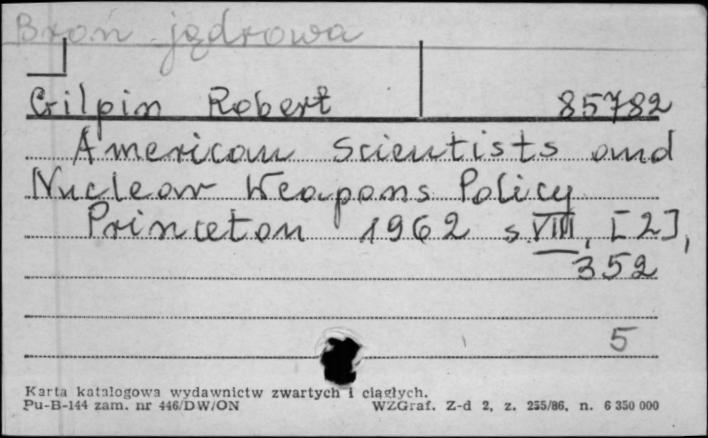 Broń jądrowa
Gilpin Robert 85782
American Scientists and
Nuclear Weapons Policy
Princeton 1962 s. VIII, [2],
352
5
Karta katalogowa wydawnictw zwartych i ciągłych.
Pu-B-144 zam. nr 446/DW/ON WZGraf. Z-d 2, z. 255/86, n. 6 350 000